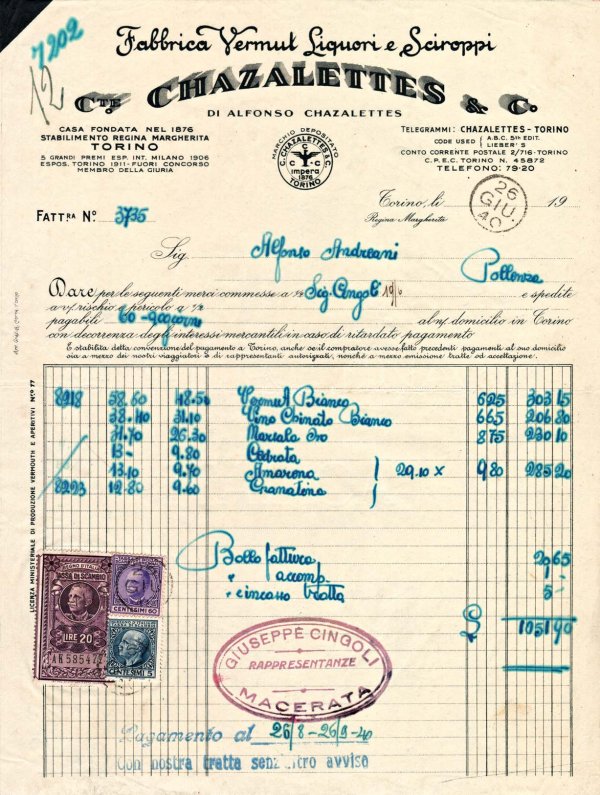 7202
12
Fabbrica Vermut Liquori e Sciroppi
Cte CHAZALETTES & Co
DI ALFONSO CHAZALETTES
CASA FONDATA NEL 1876
STABILIMENTO REGINA MARGHERITA
TORINO
5 GRANDI PREMI ESP. INT. MILANO 1906
ESPOS. TORINO 1911 - FUORI CONCORSO
MEMBRO DELLA GIURIA
MARCHIO DEPOSITATO
C. CHAZALETTES & C.
C C C
impera
1876
TORINO
TELEGRAMMI: CHAZALETTES - TORINO
CODE USED A.B.C. 5th EDIT.
LIEBER'S
CONTO CORRENTE POSTALE 2/716 - TORINO
C.P.E.C. TORINO N. 45872
TELEFONO: 79-20
FATTRA No. 3735
Torino, li 19
Regina Margherita
26 GIU. 40
Sig. Alfonso Andreani
Pollenza
Dare per le seguenti merci commesse a Sig. Cingoli 19/6 e spedite
a v/ rischio e pericolo a
pagabili 60-90 giorni al n/ domicilio in Torino
con decorrenza degli interessi mercantili in caso di ritardato pagamento
È stabilita della convenzione del pagamento a Torino, anche se il compratore avesse fatto precedenti pagamenti al suo domicilio
sia a mezzo dei nostri viaggiatori e di rappresentanti autorizzati, nonchè a mezzo emissione tratte od accettazione.
LICENZA MINISTERIALE DI PRODUZIONE VERMOUTH E APERITIVI N.ro 77
8218 58.60 48.50 Vermut Bianco 625 303 15
38.40 31.10 Vino Chinato Bianco 665 206 80
31.70 26.30 Marsala Oro 875 230 10
13.- 9.80 Cedrata
13.10 9.70 Amarena 29.10 x 9,80 285 20
8223 12.80 9.60 Granatina
Bollo fattura 20 65
" accomp. 1 -
" e incasso tratta 5 -
£ 1051 90
REGNO D'ITALIA
TASSA DI SCAMBIO
LIRE 20
CENTESIMI 60
CENTESIMI 5
GIUSEPPE CINGOLI
RAPPRESENTANZE
MACERATA
Pagamento al 26/8 - 26/9 - 40
Con nostra tratta senz'altro avviso